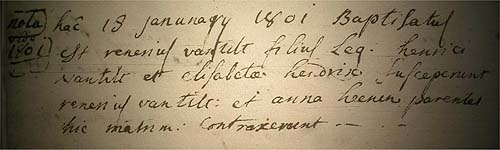 nota hac 18 janunary 1801 Baptisatus
vide est renerius vantilt filius Leg. henrici
1801 vantilt et elisabetæ hendrix susceperunt
renerius vantilt: et anna heenen parentes
hic matrim: contraxerunt —